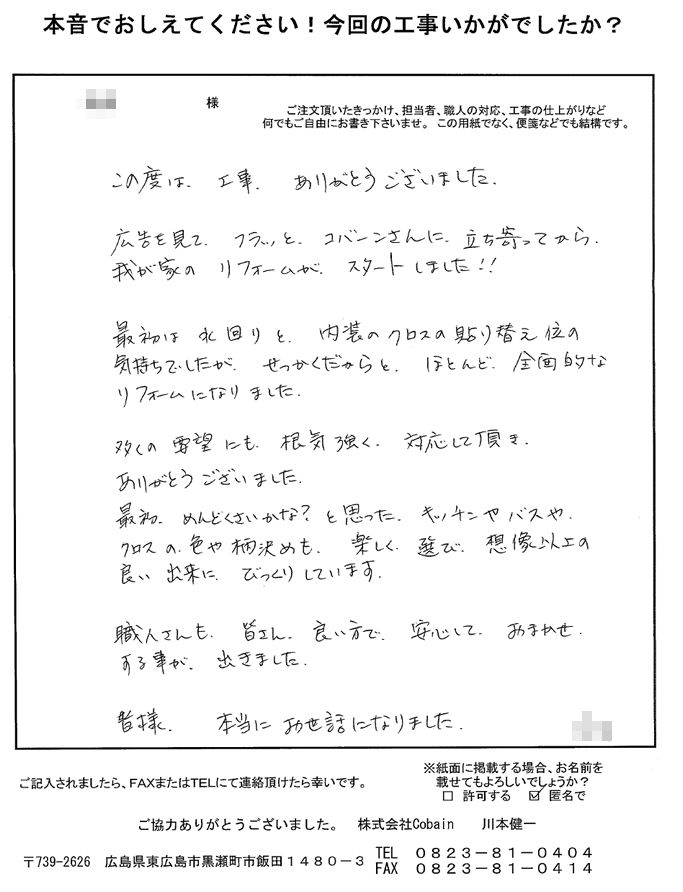 本音でおしえてください！今回の工事いかがでしたか？
様
ご注文頂いたきっかけ、担当者、職人の対応、工事の仕上がりなど
何でもご自由にお書き下さいませ。この用紙でなく、便箋などでも結構です。
この度は、工事、ありがとうございました。
広告を見て、フラッと、コバーンさんに、立ち寄ってから、
我が家の リフォームが、スタートしました!!
最初は 水回りと、内装のクロスの貼り替え位の
気持ちでしたが、せっかくだからと、ほとんど、全面的な
リフォームになりました。
多くの 要望にも、根気強く、対応して頂き、
ありがとうございました。
最初、めんどくさいかな？と思った、キッチンやバスや、
クロスの、色や柄決めも、楽しく、選び、想像以上の
良い 出来に、びっくりしています。
職人さんも、皆さん、良い方で、安心して、おまかせ、
する事が、出きました。
皆様、本当に お世話になりました。
ご記入されましたら、FAXまたはTELにて連絡頂けたら幸いです。
※紙面に掲載する場合、お名前を
載せてもよろしいでしょうか？
□ 許可する ☑ 匿名で
ご協力ありがとうございました。 株式会社Cobain 川本健一
〒739-2626 広島県東広島市黒瀬町市飯田１４８０－３
TEL ０８２３－８１－０４０４
FAX ０８２３－８１－０４１４